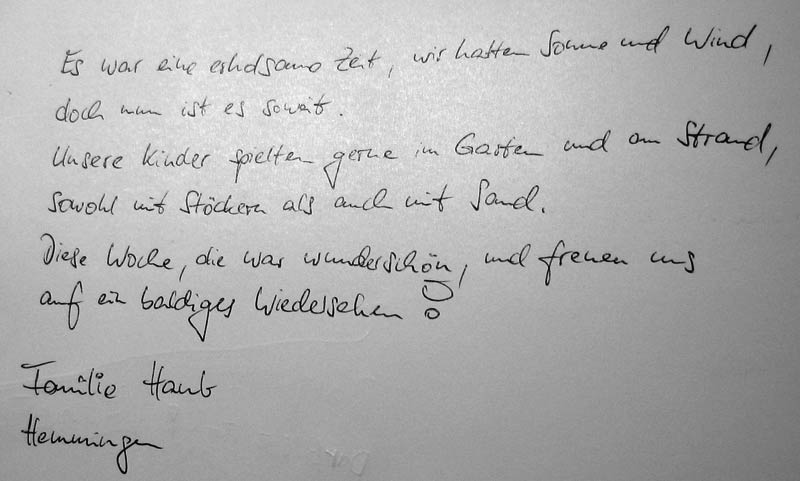 Es war eine erholsame Zeit, wir hatten Sonne und Wind,
doch nun ist es soweit.
Unsere Kinder spielten gerne im Garten und am Strand,
sowohl mit Stöckern als auch mit Sand.
Diese Woche, die war wunderschön, und freuen uns
auf ein baldiges Wiedersehen!
Familie Haub
Hemmingen